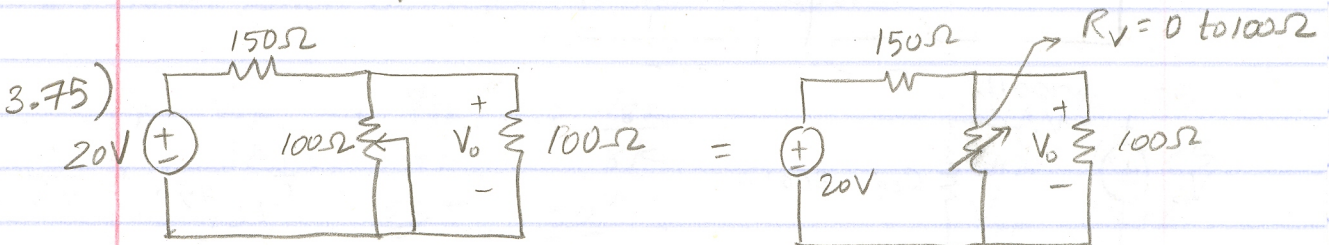 3.75)
150Ω
20V
+
-
100Ω
+
V₀
-
100Ω
=
150Ω
R_V = 0 to 100Ω
+
-
20V
+
V₀
-
100Ω